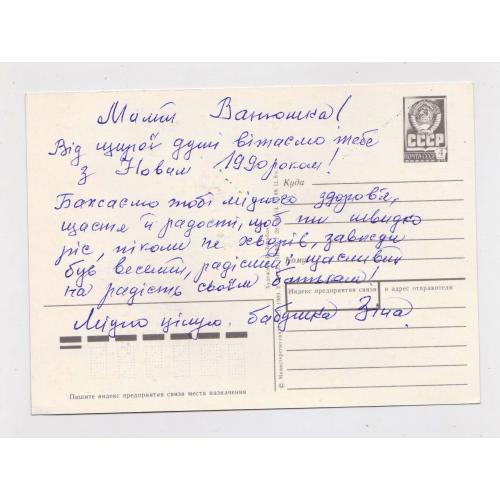 Милий Ванюшка!
Від щирої душі вітаємо тебе
з Новим 1990 роком!
Бажаємо тобі міцного здоров'я,
щастя й радості, щоб ти швидко
ріс, ніколи не хворів, завжди
був веселий, радісний щасливий
на радість своїм батькам!
Міцно цілую. бабушка Зіна
СССР
ПОЧТА СССР
4
Куда
Кому
Индекс предприятия связи и адрес отправителя
Пишите индекс предприятия связи места назначения